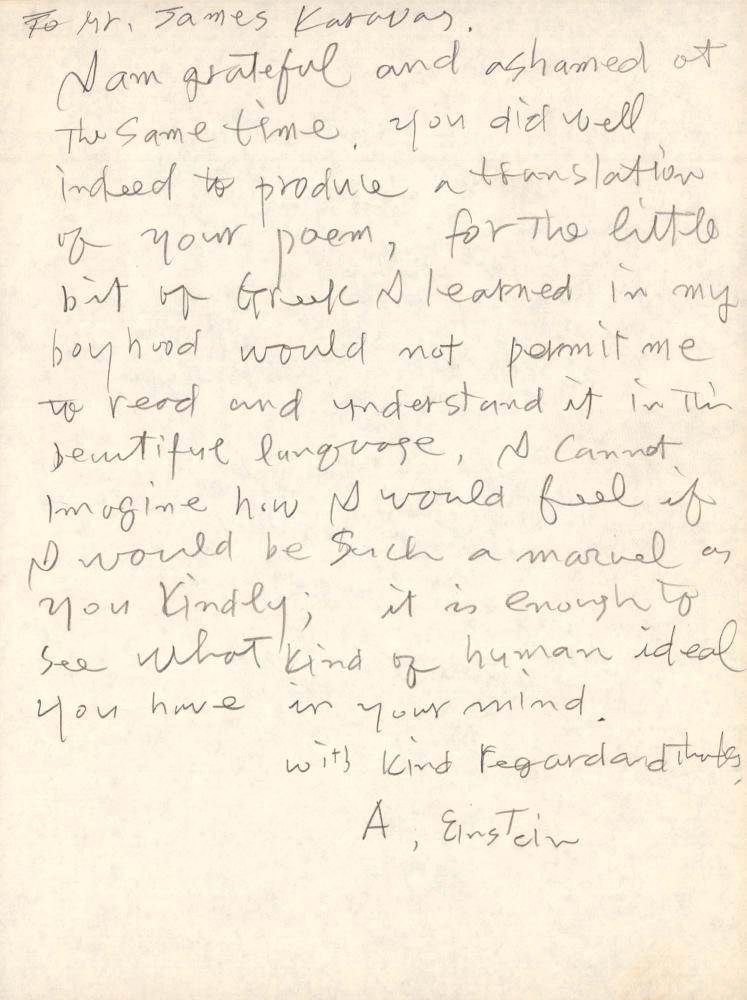 To Mr. James Karavas.
I am grateful and ashamed at
the same time. you did well
indeed to produce a translation
of your poem, for the little
bit of Greek I learned in my
boyhood would not permit me
to read and understand it in this
beautiful language, I cannot
imagine how I would feel if
I would be such a marvel as
you kindly; it is enough to
see what kind of human ideal
you have in your mind.
with kind regard and thanks,
A, Einstein